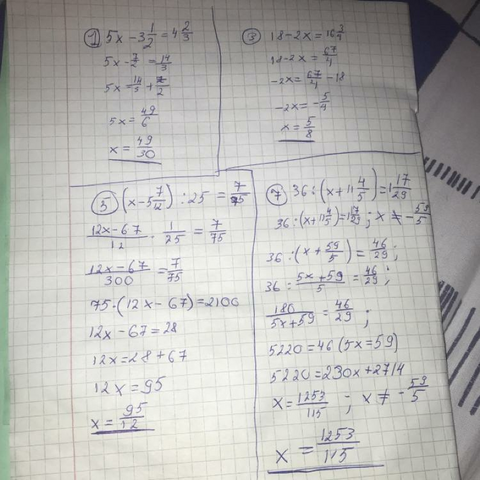 1 5x - 3 1/2 = 4 2/3
5x - 7/2 = 14/3
5x = 14/3 + 7/2
5x = 49/6
x = 49/30
3 18 - 2x = 16 3/4
18 - 2x = 67/4
-2x = 67/4 - 18
-2x = -5/4
x = 5/8
5 (x - 5 7/12) : 25 = 7/75
12x - 67/12 · 1/25 = 7/75
12x - 67/300 = 7/75
75 · (12x - 67) = 2100
12x - 67 = 28
12x = 28 + 67
12x = 95
x = 95/12
7 36 : (x + 11 4/5) = 1 17/29
36 : (x + 11 4/5) = 1 17/29 ; x ≠ - 59/5
36 : (x + 59/5) = 46/29 ;
36 : 5x + 59/5 = 46/29 ;
180/5x + 59 = 46/29 ;
5220 = 46 (5x = 59)
5220 = 230x + 2714
x = 1253/115 ; x ≠ - 59/5
x = 1253/115